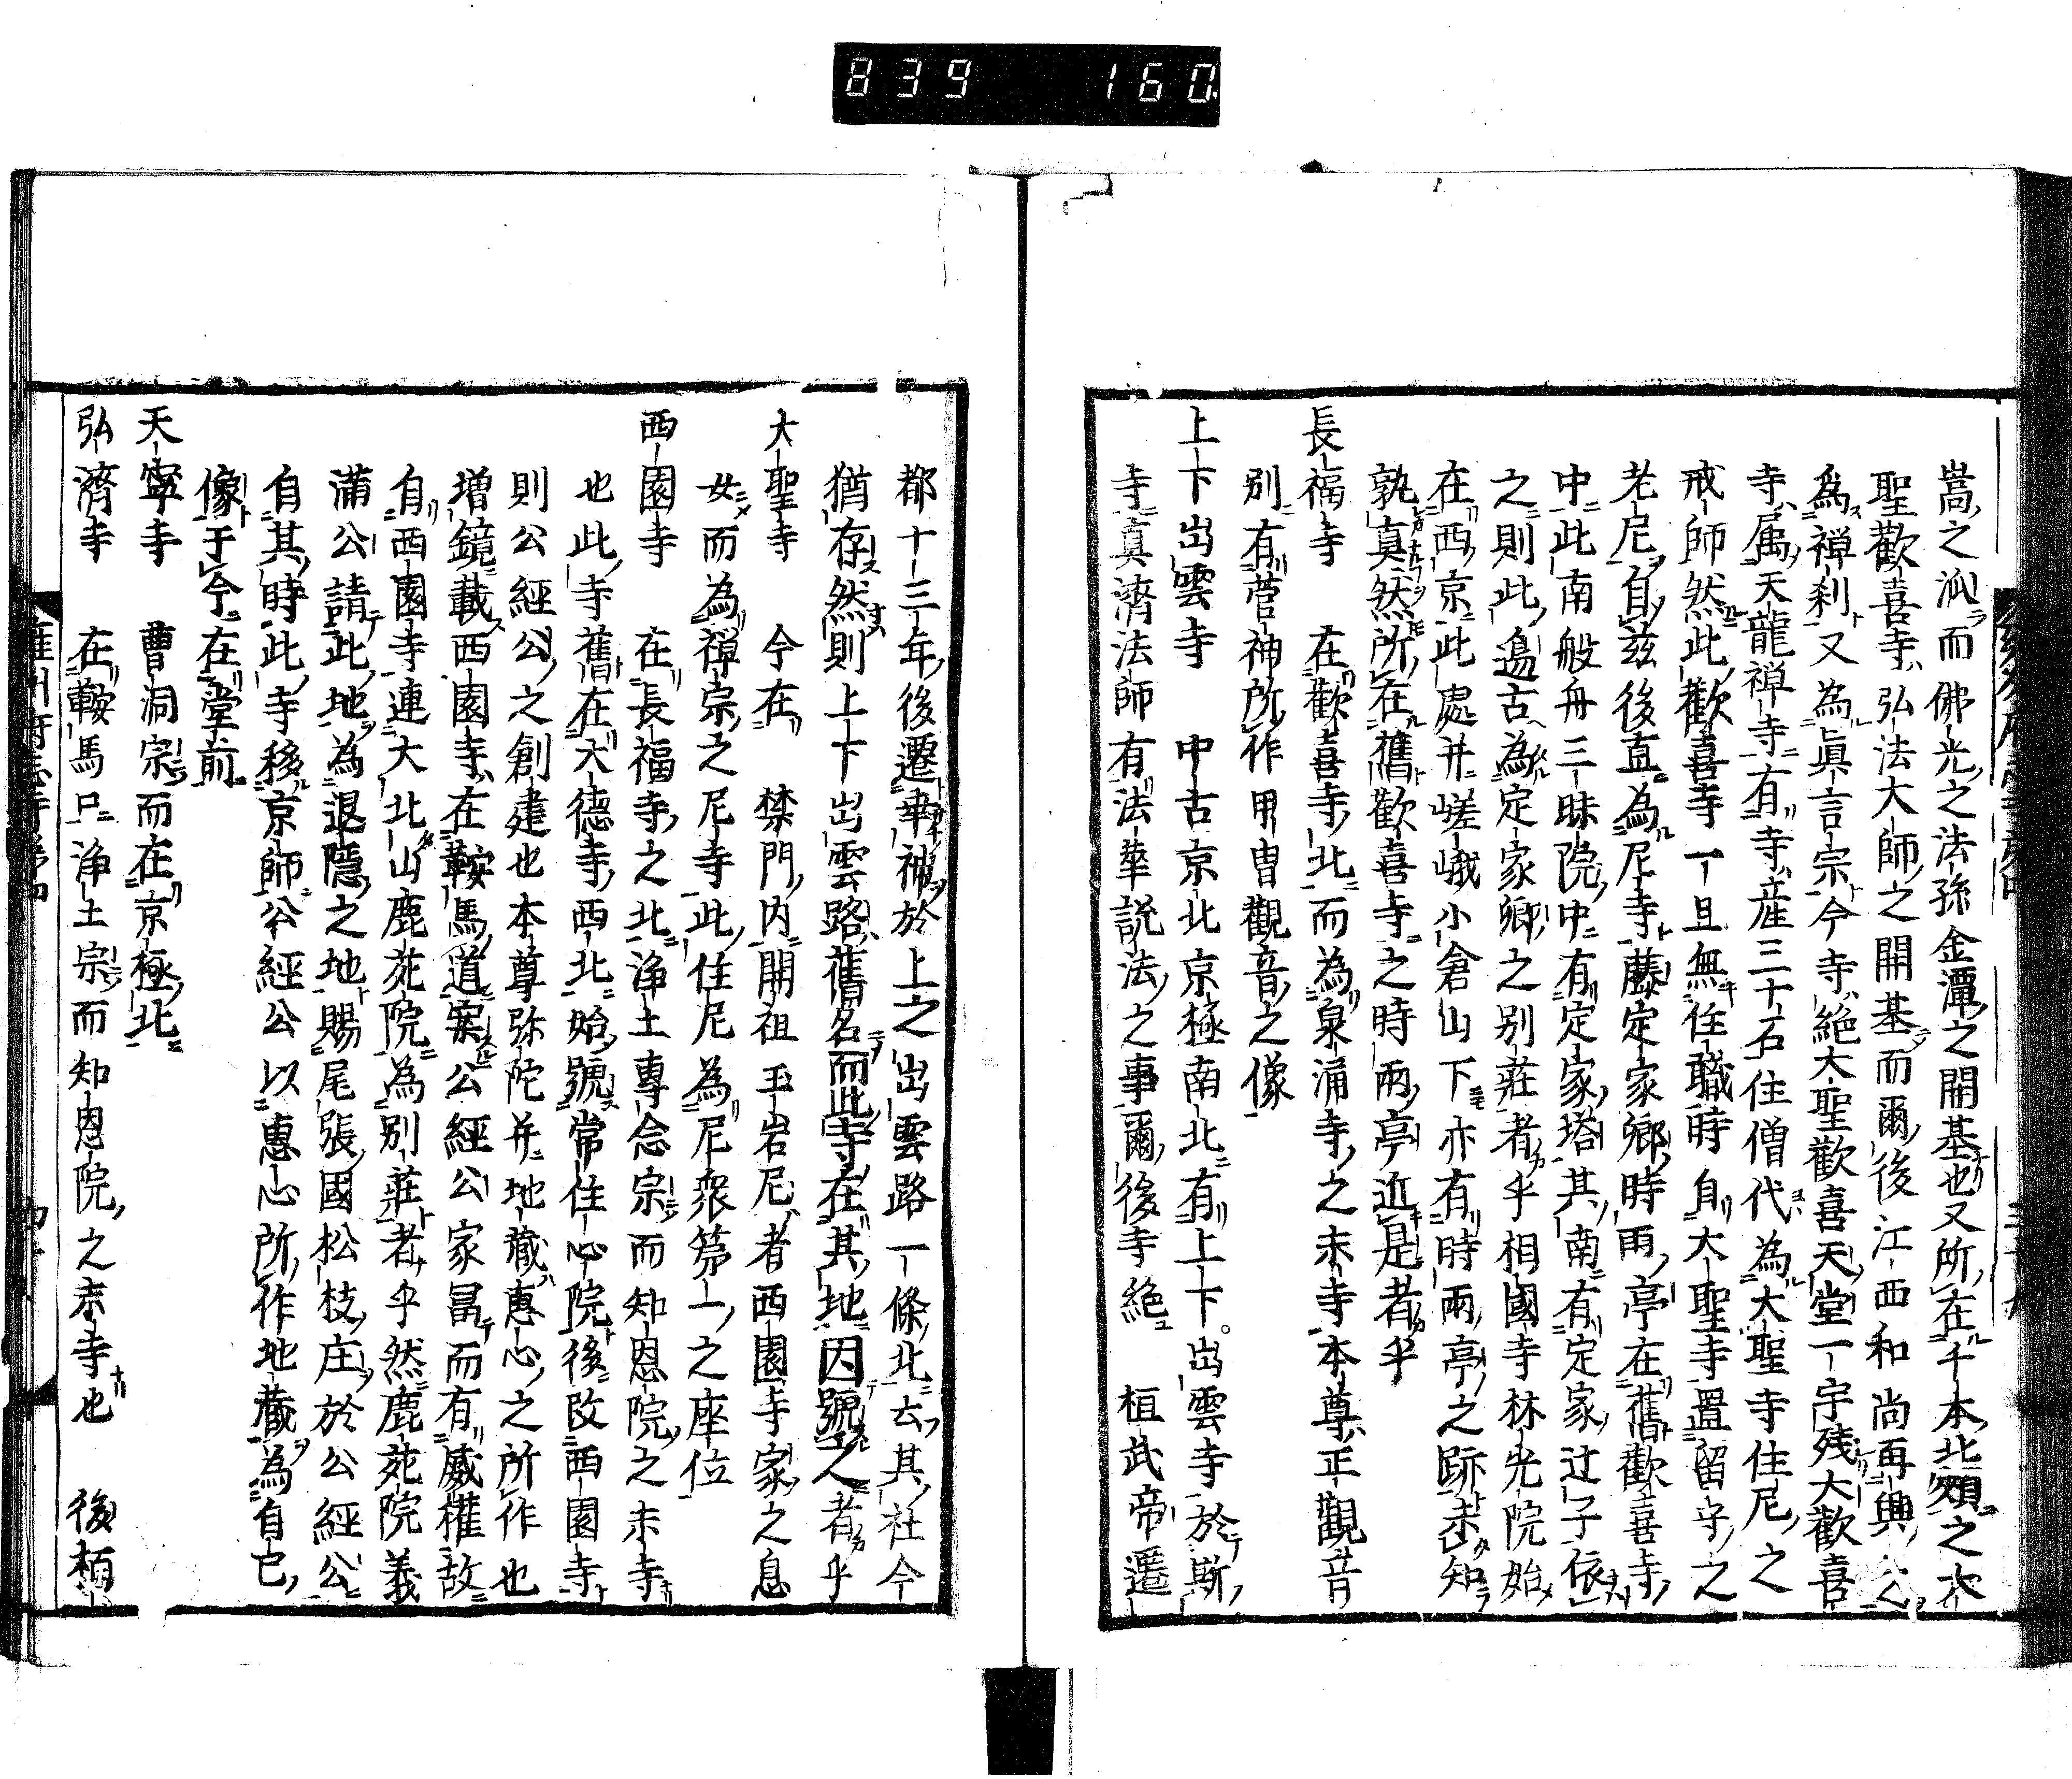 839 160
嵩之派而佛光之法孫金潭之開基也又所在千本北頬之大
聖歡喜寺弘法大師之開基而爾後江西和尚再興之
為禅刹又為眞言宗今寺絕大聖歡喜天堂一宇残大歡喜
寺属天龍禅寺有寺産三十石住僧代為大聖寺住尼之
戒師然此歡喜寺一旦無住職時自大聖寺置留守之
老尼自茲後直為尼寺藤定家卿時雨亭在舊歡喜寺
中此南般舟三昧院中有定家塔其南有定家辻子依
之則此邉古為定家卿之別莊者乎相國寺林光院始
在西京此處并嵯峨小倉山下亦有時雨亭之跡未知
孰真然所在舊歡喜寺之時雨亭近是者乎
長福寺 在歡喜寺北而為泉涌寺之末寺本尊正觀音
別有菅神所作甲冑觀音之像
上下出雲寺 中古京北京極南北有上下出雲寺於斯
寺真濟法師有法華説法之事爾後寺絕 桓武帝遷
都十三年後遷幸神於上之出雲路一條北去其社今
猶存然則上下出雲路舊名而此寺在其地因號之者乎
大聖寺 今在 禁門内開祖玉岩尼者西園寺家之息
女而為禅宗之尼寺此住尼為尼衆第一之座位
西園寺 在長福寺之北浄土專念宗而知恩院之末寺
也此寺舊在大德寺西北始號常住心院後改西園寺
則公經公之創建也本尊弥陀并地藏惠心之所作也
増鏡載西園寺在鞍馬道案公經公家冨而有威權故
自西園寺連大北山鹿苑院為別莊者乎然鹿苑院義
滿公請此地為退隱之地賜尾張國松枝庄於公經公
自其時此寺移京師公經公以惠心所作地藏為自己
像于今在堂前
天寧寺 曹洞宗而在京極北
弘濟寺 在鞍馬口浄土宗而知恩院之末寺也 後栢